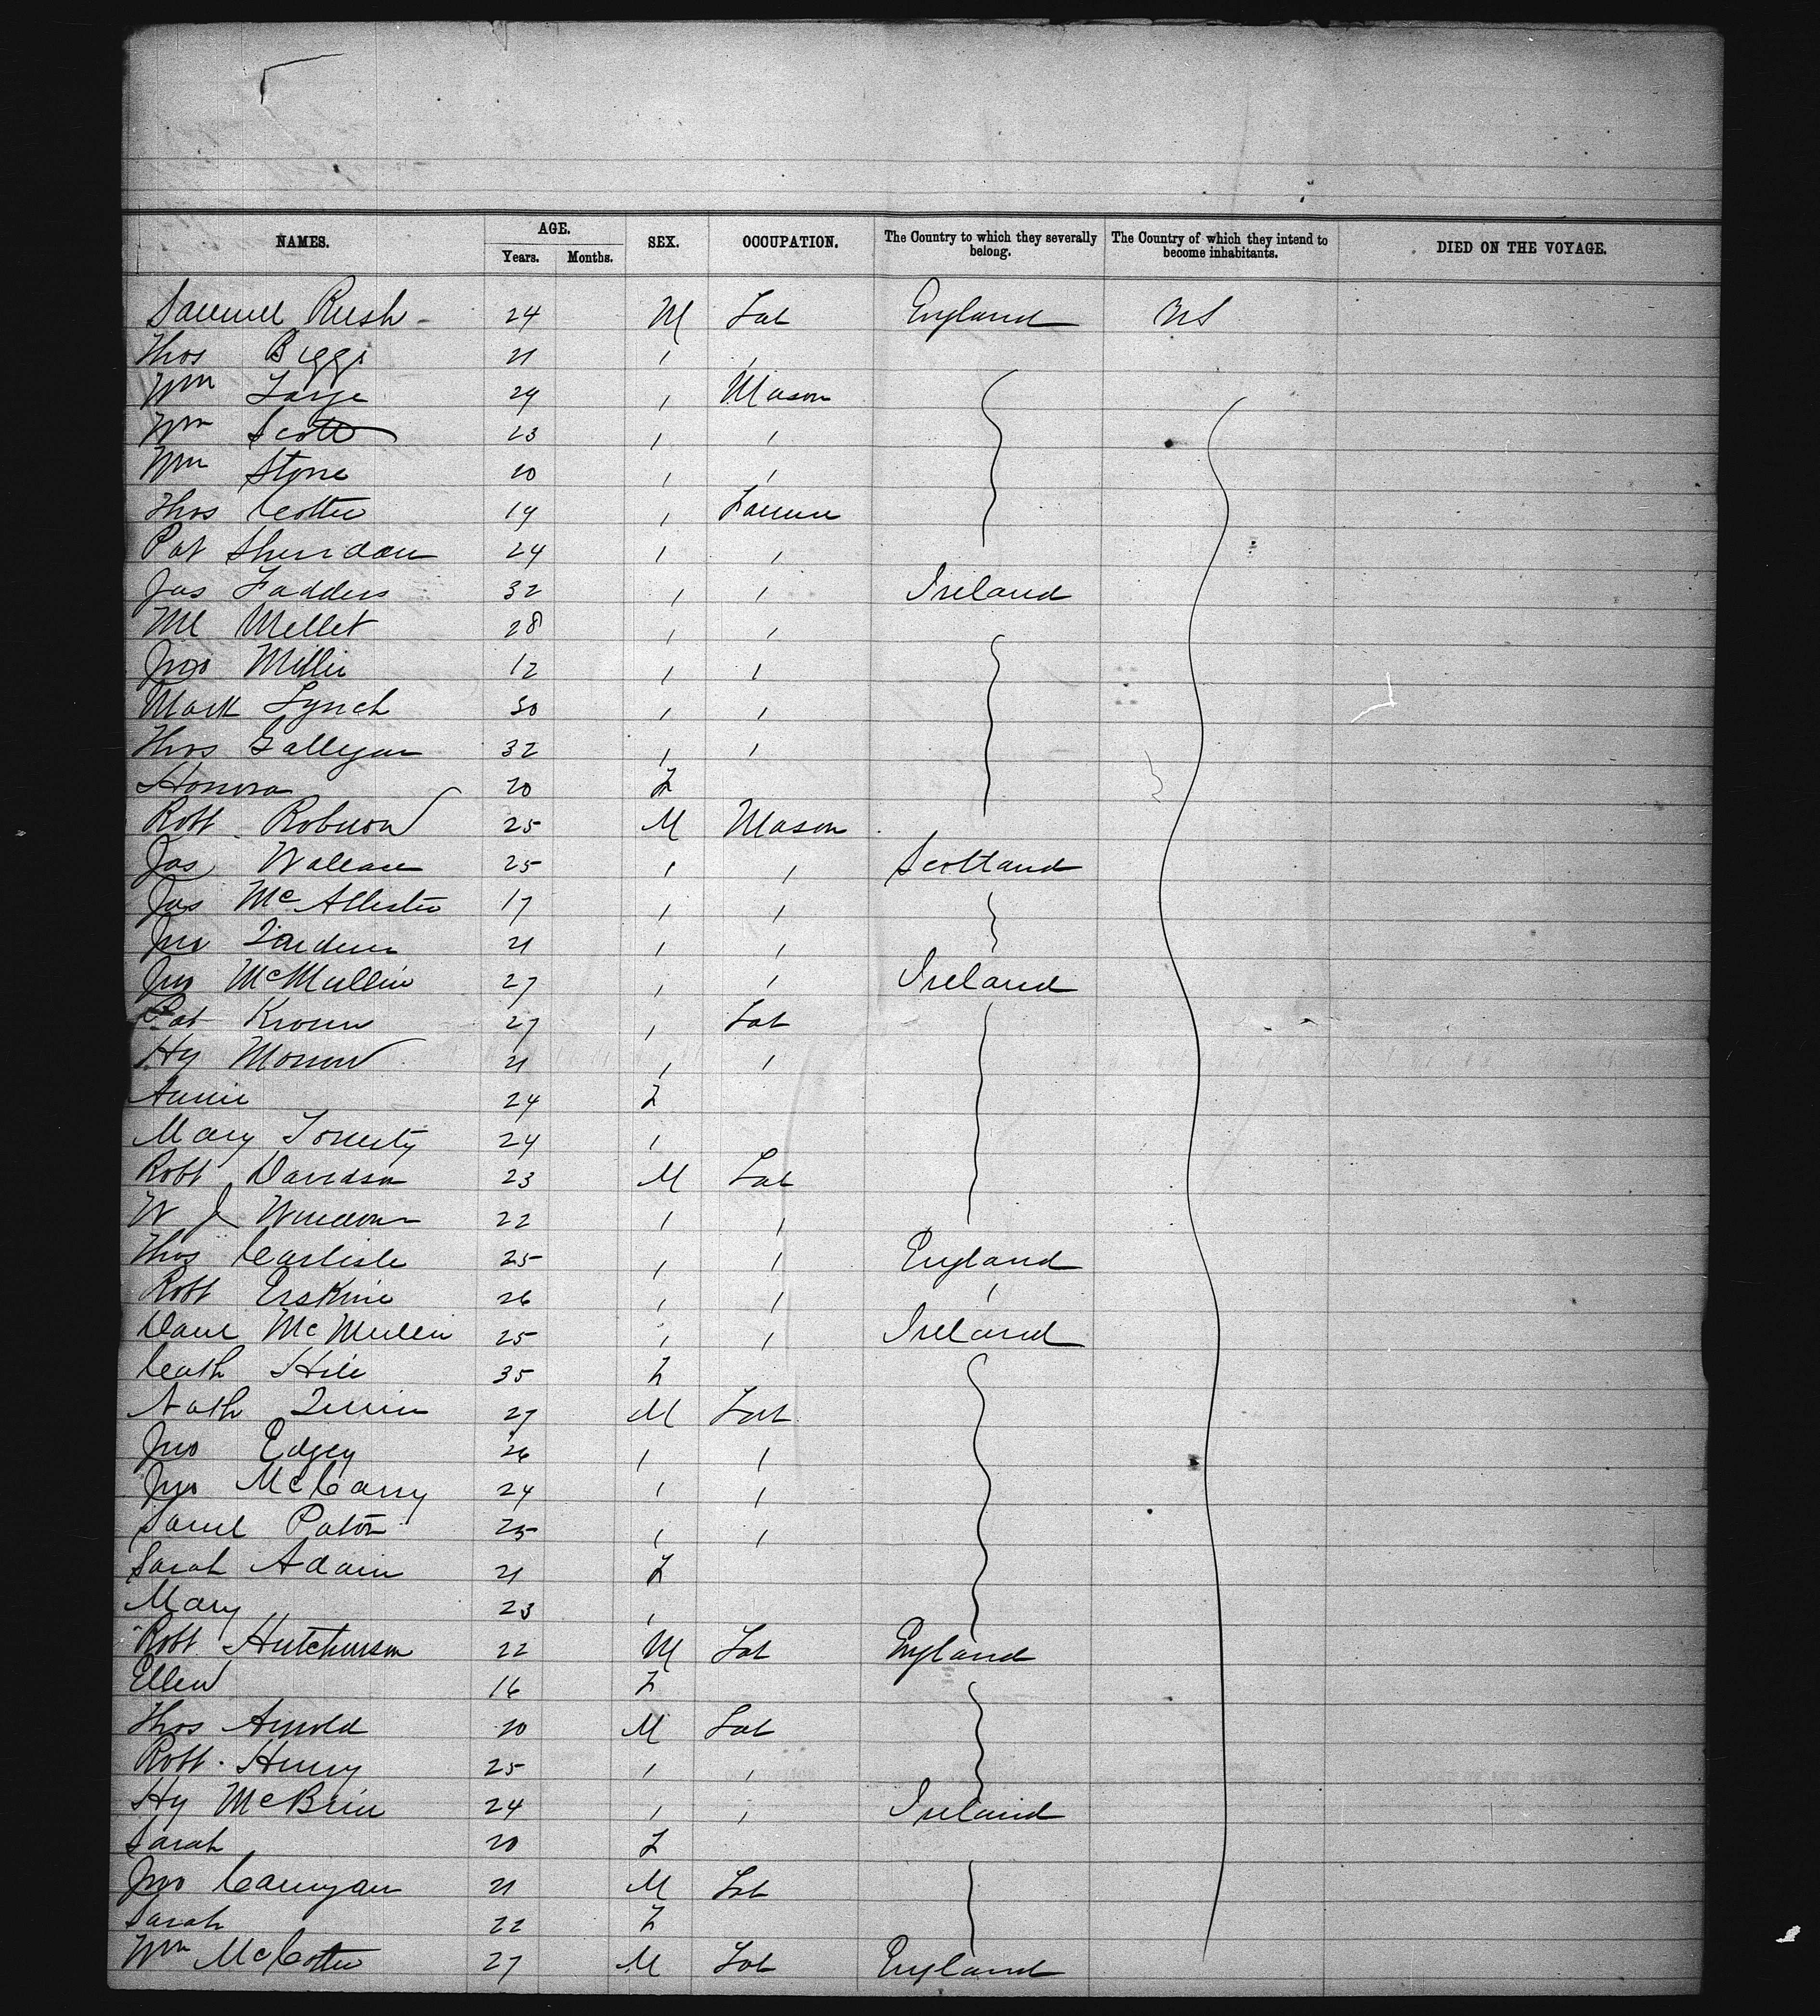 NAMES. AGE. SEX. OCCUPATION. The Country to which they severally belong. The Country of which they intend to become inhabitants. DIED ON THE VOYAGE.
Years. Months.
Samuel Rush 24 M Lab England US
Thos Biggs 21 " "
Wm Large 24 " Mason
Wm Scott 23 " "
Wm Stone 20 " "
Thos Cotter 19 " Farmer
Pat Sheridan 24 " "
Jas Fadders 32 " " Ireland
Ml Mellet 28 " "
Jno Miller 12 " "
Mark Lynch 30 " "
Thos Galligan 32 " "
Honora 20 F
Robt Robison 25 M Mason
Jas Wallace 25 " " Scotland
Jas McAllester 17 " "
Jno Gardner 21 " "
Jno McMullin 27 " " Ireland
Pat 27 " Lab
Hy Morrow 21 " "
Annie 24 F
Mary 24 "
Robt Davidson 23 M Lab
W J 22 " "
Thos Carlisle 25 " " England
Robt Erskine 26 " " "
Danl McMullin 25 " " Ireland
Cath Hill 35 F
Nath 27 M Lab
Jno Edgey 26 " "
Jno McCarry 24 " "
Saml Paton 25 " "
Sarah Adair 21 F
Mary 23 "
Robt Hutchinson 22 M Lab England
Ellen 16 F
Thos Arnold 20 M Lab
Robt Henry 25 " "
Hy McBrin 24 " " Ireland
Sarah 20 F
Jno Carrigan 21 M Lab
Sarah 22 F
Wm McCotter 27 M Lab England